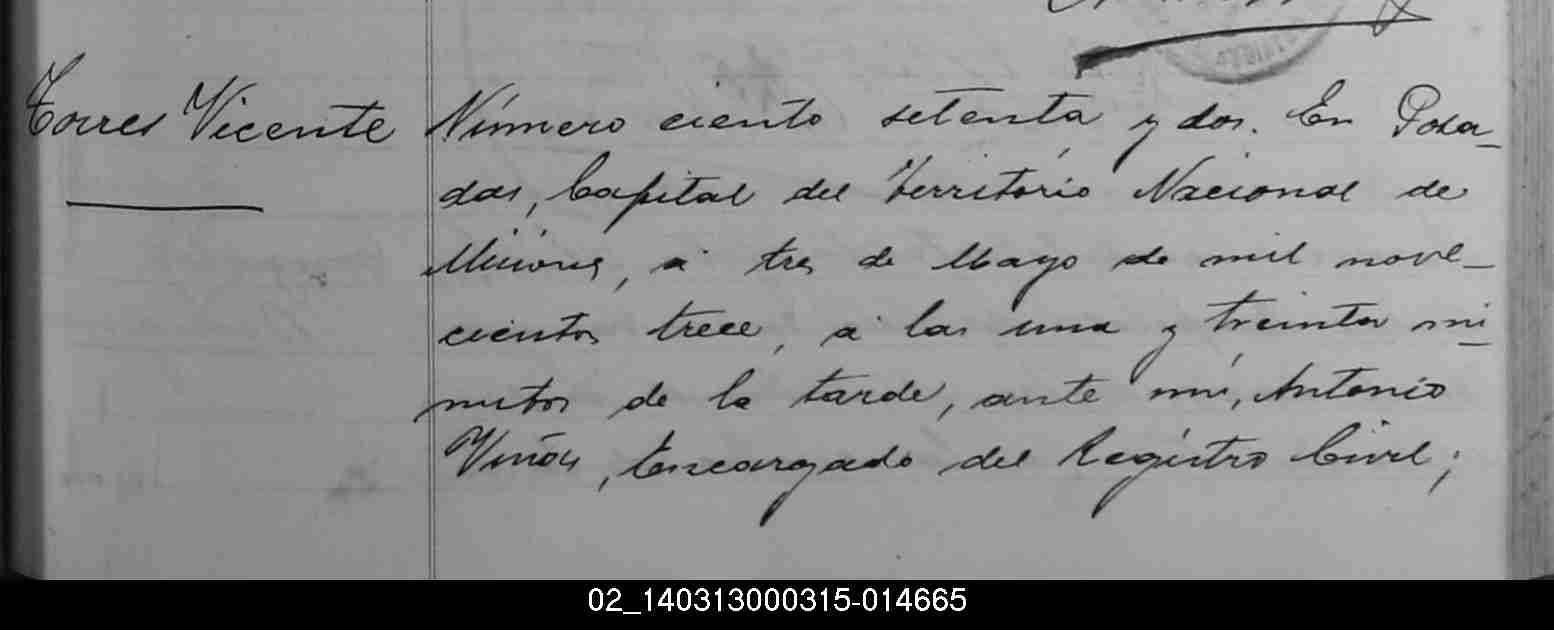 Torres Vicente
Número ciento setenta y dos. En Posa-
das, Capital del Territorio Nacional de
Misiones, á tres de Mayo de mil nove-
cientos trece, á las una y treinta mi-
nutos de la tarde, ante mí, Antonio
Viñas, Encargado del Registro Civil;
02_140313000315-014665